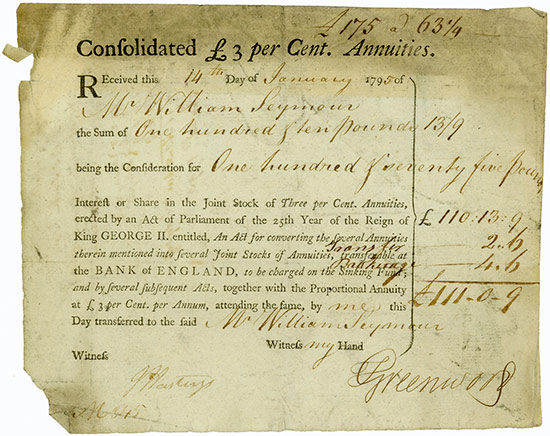 £175 at 63 1/4
Consolidated £3 per Cent. Annuities.
REceived this 14th Day of January 1795 of
Mr William Seymour
the Sum of One hundred & ten Pounds 13/9
being the Consideration for One hundred & seventy five Pounds
Interest or Share in the Joint Stock of Three per Cent. Annuities,
erected by an Act of Parliament of the 25th Year of the Reign of
King GEORGE II. entitled, An Act for converting the several Annuities
therein mentioned into several Joint Stocks of Annuities, transferable at
the BANK of ENGLAND, to be charged on the Sinking Fund;
and by several subsequent Acts, together with the Proportional Annuity
at £3 per Cent. per Annum, attending the same, by me this
Day transferred to the said Mr William Seymour
Witness my Hand
Witness
Greenwood
£ 110-13-9
Transfer 2-6
Brokerage 4-6
£111-0-9